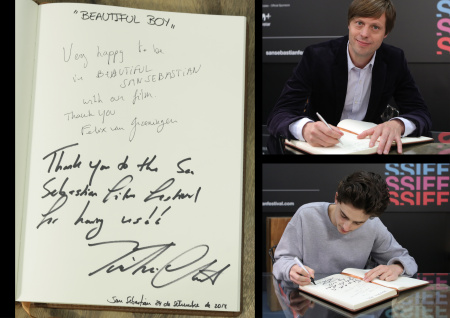 "BEAUTIFUL BOY"
Very happy to be
in BEAUTIFUL
SAN SEBASTIAN
with our film
Thank you
Felix van Groeningen
Thank you to the San
Sebastian film festival
for having us!!
San Sebastian 29 de setiembre de 2018
sansebastianfestival
SSIFF
SSIFF
SSIFF
nfestival.com